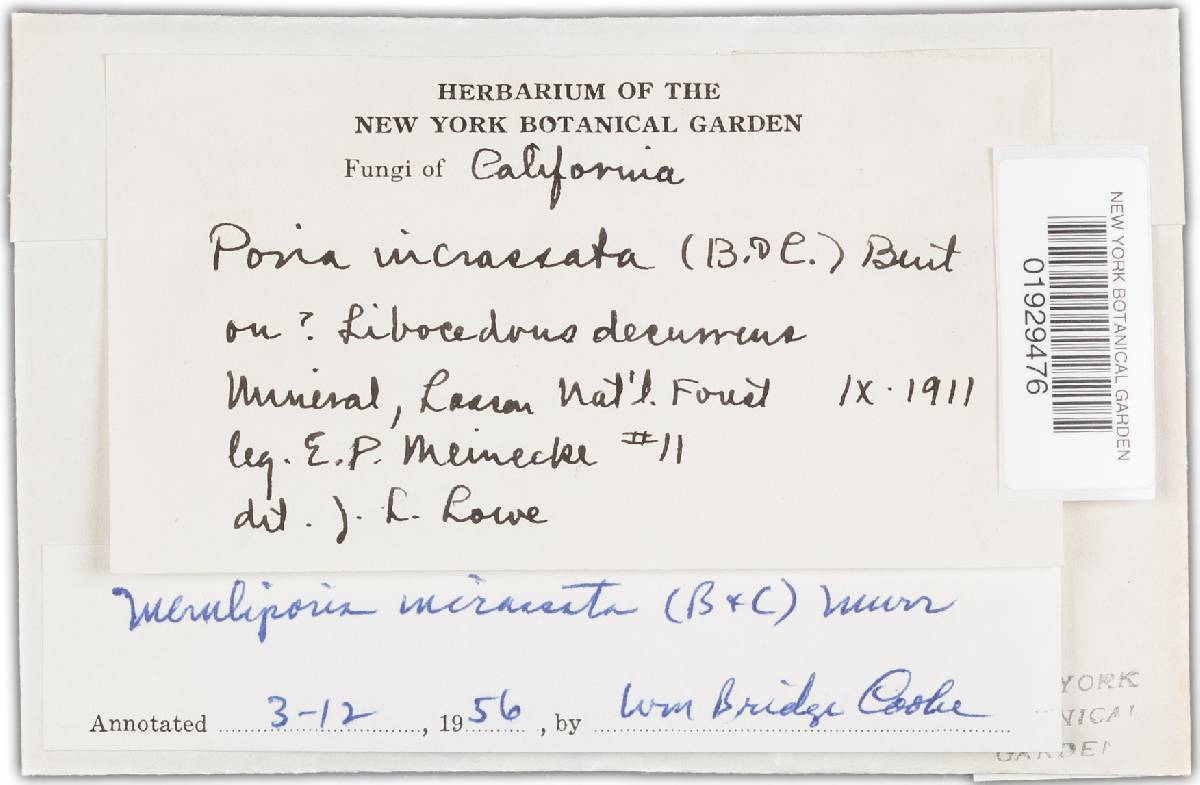 HERBARIUM OF THE
NEW YORK BOTANICAL GARDEN
Fungi of California
Poria incrassata (B. & C.) Burt
on ? Libocedrus decurrens
Mineral, Lassen Nat'l. Forest IX · 1911
leg. E. P. Meinecke #11
det. J. L. Lowe
Meruliporia incrassata (B & C) Murr
Annotated 3-12, 1956, by Wm Bridge Cooke
NEW YORK BOTANICAL GARDEN
01929476
YORK
NICAL
GARDEN